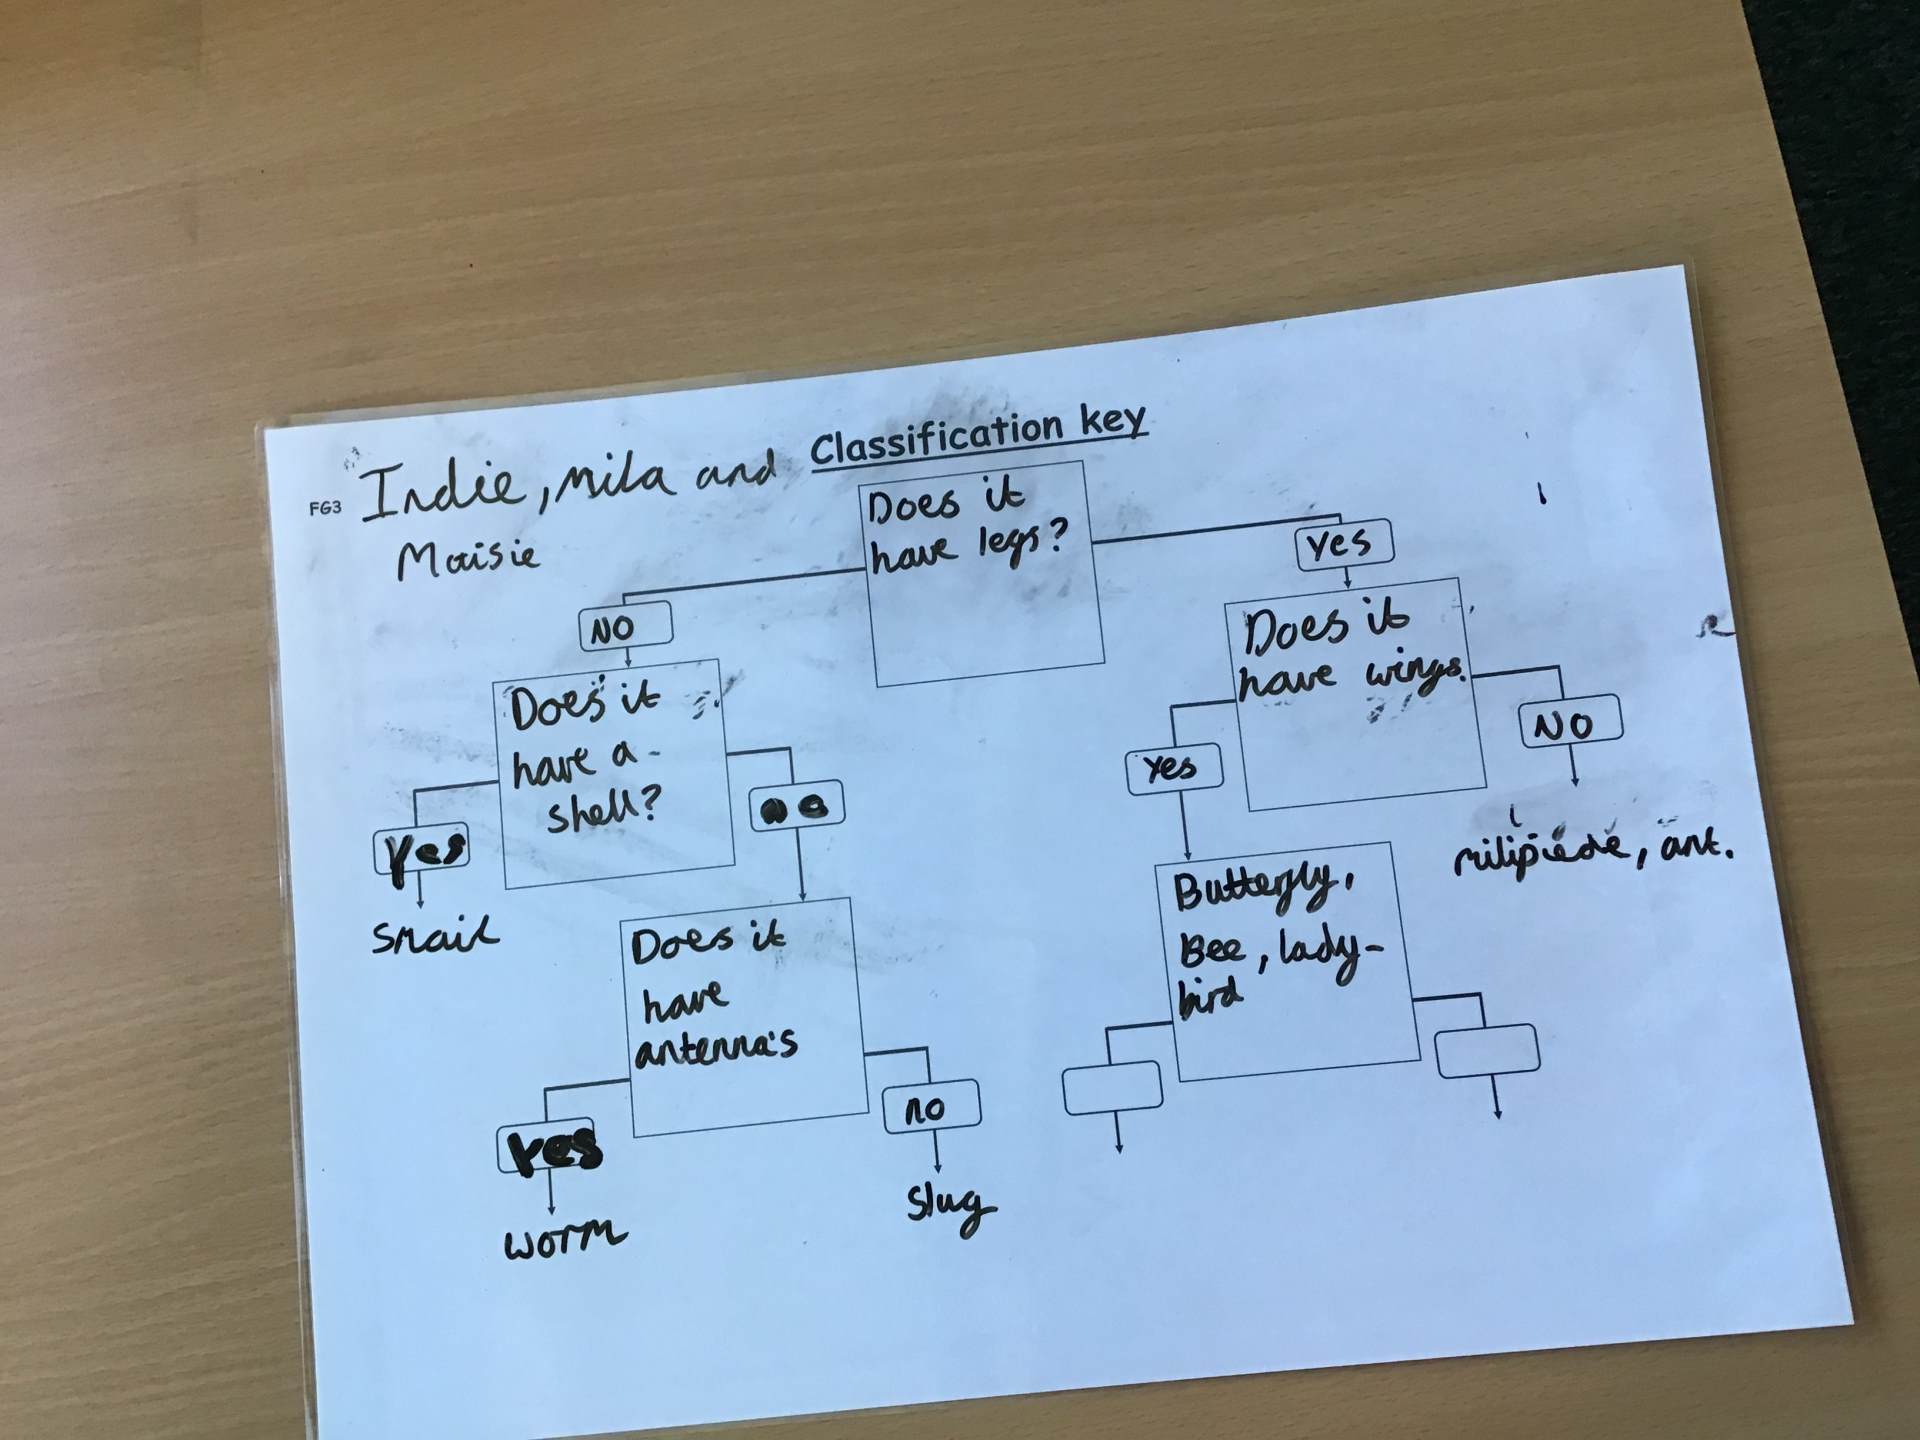 Classification key
FG3 Indie, Mila and
Maisie
Does it
have legs?
NO
yes
Does it
have a-
shell?
Does it
have wings.
yes
no
yes
NO
snail
Does it
have
antenna's
Butterfly,
Bee, lady-
bird
milipiede, ant.
yes
no
worm
slug